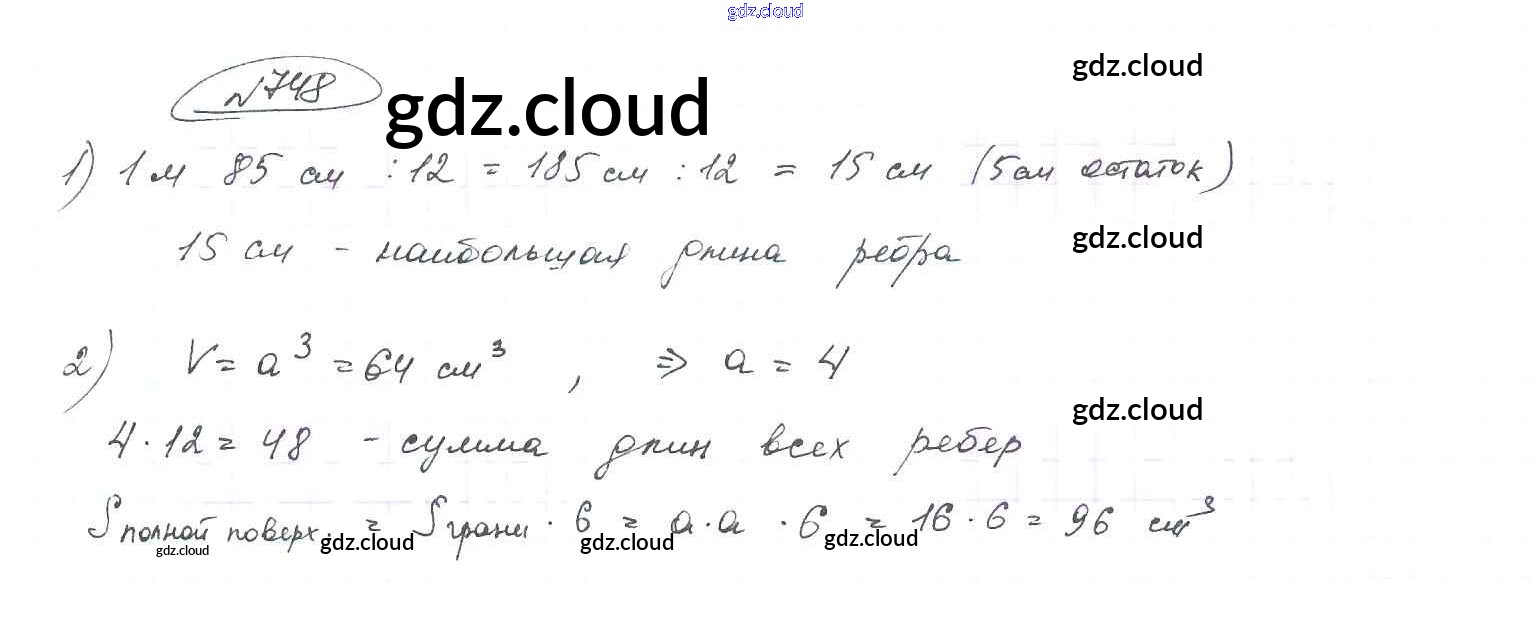 gdz.cloud
gdz.cloud
№748 gdz.cloud
1) 1 м 85 см : 12 = 185 см : 12 = 15 см (5 см остаток)
gdz.cloud
15 см - наибольшая длина ребра
2) V = a³ = 64 см³ , ⇒ a = 4
gdz.cloud
4 · 12 = 48 - сумма длин всех ребер
S полной поверх. = S грани · 6 = a · a · 6 = 16 · 6 = 96 см³
gdz.cloud gdz.cloud gdz.cloud gdz.cloud